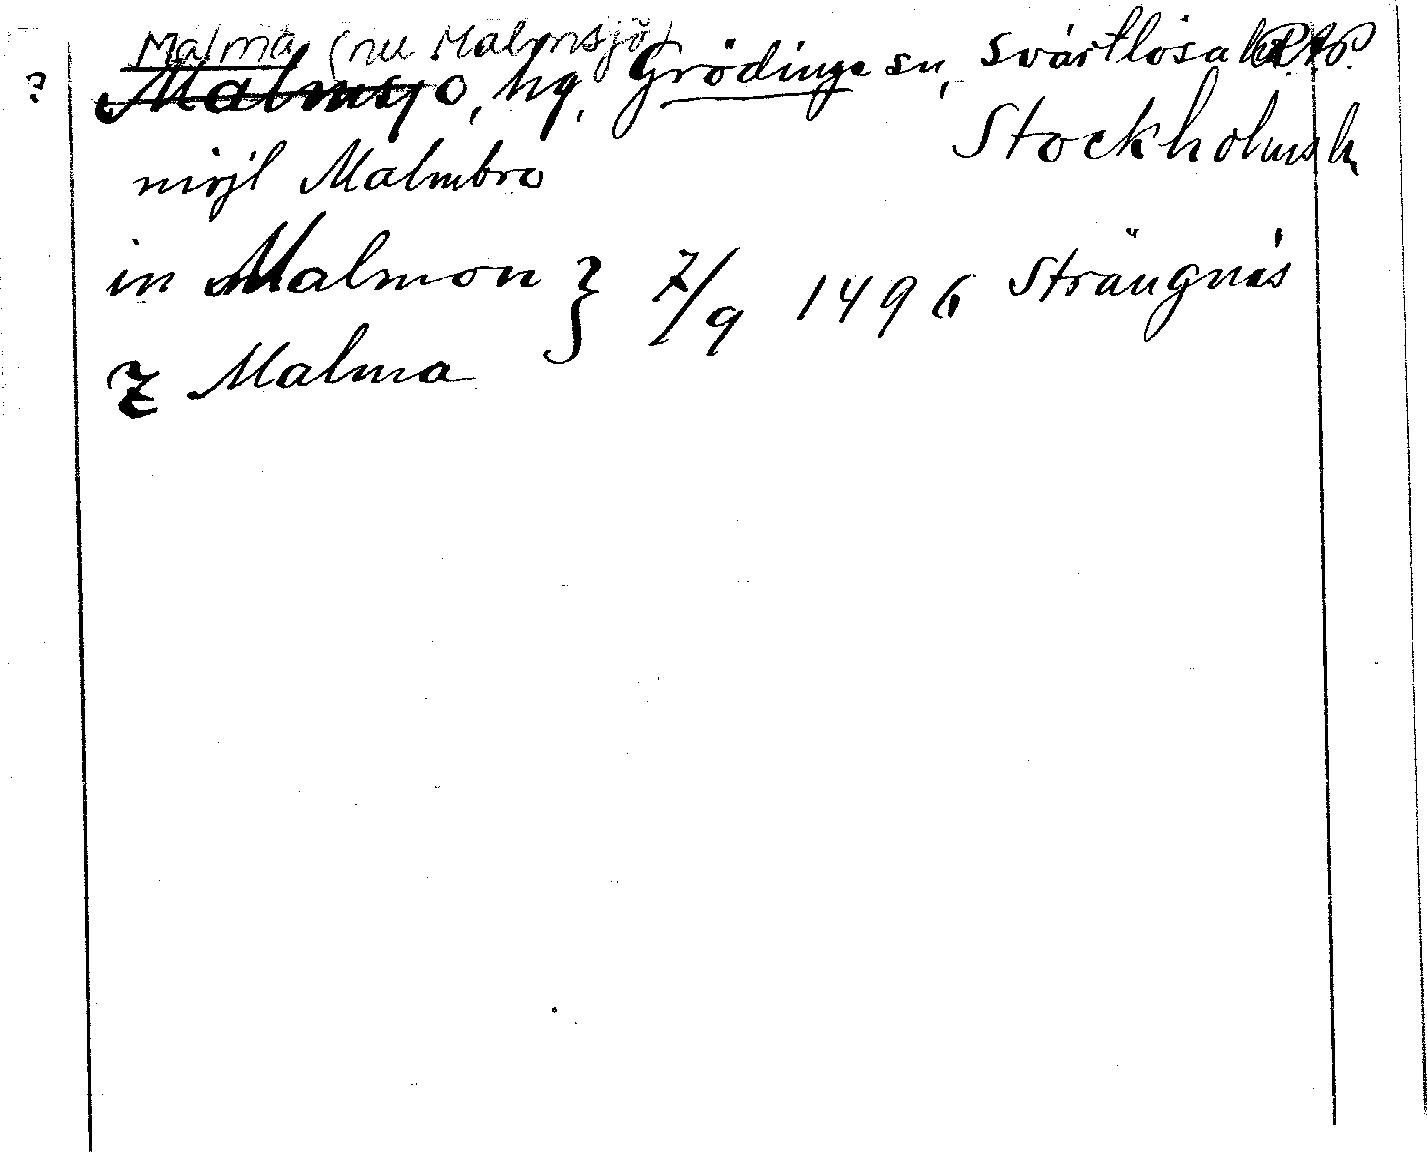 Malma (nu Malmsjö)
? Malmsjö, hg, Grödinge sn, Svartlösa hd
Stockholms l.
möjl Malmbro
in Malmon } 7/9 1496 Strängnäs
Z Malma